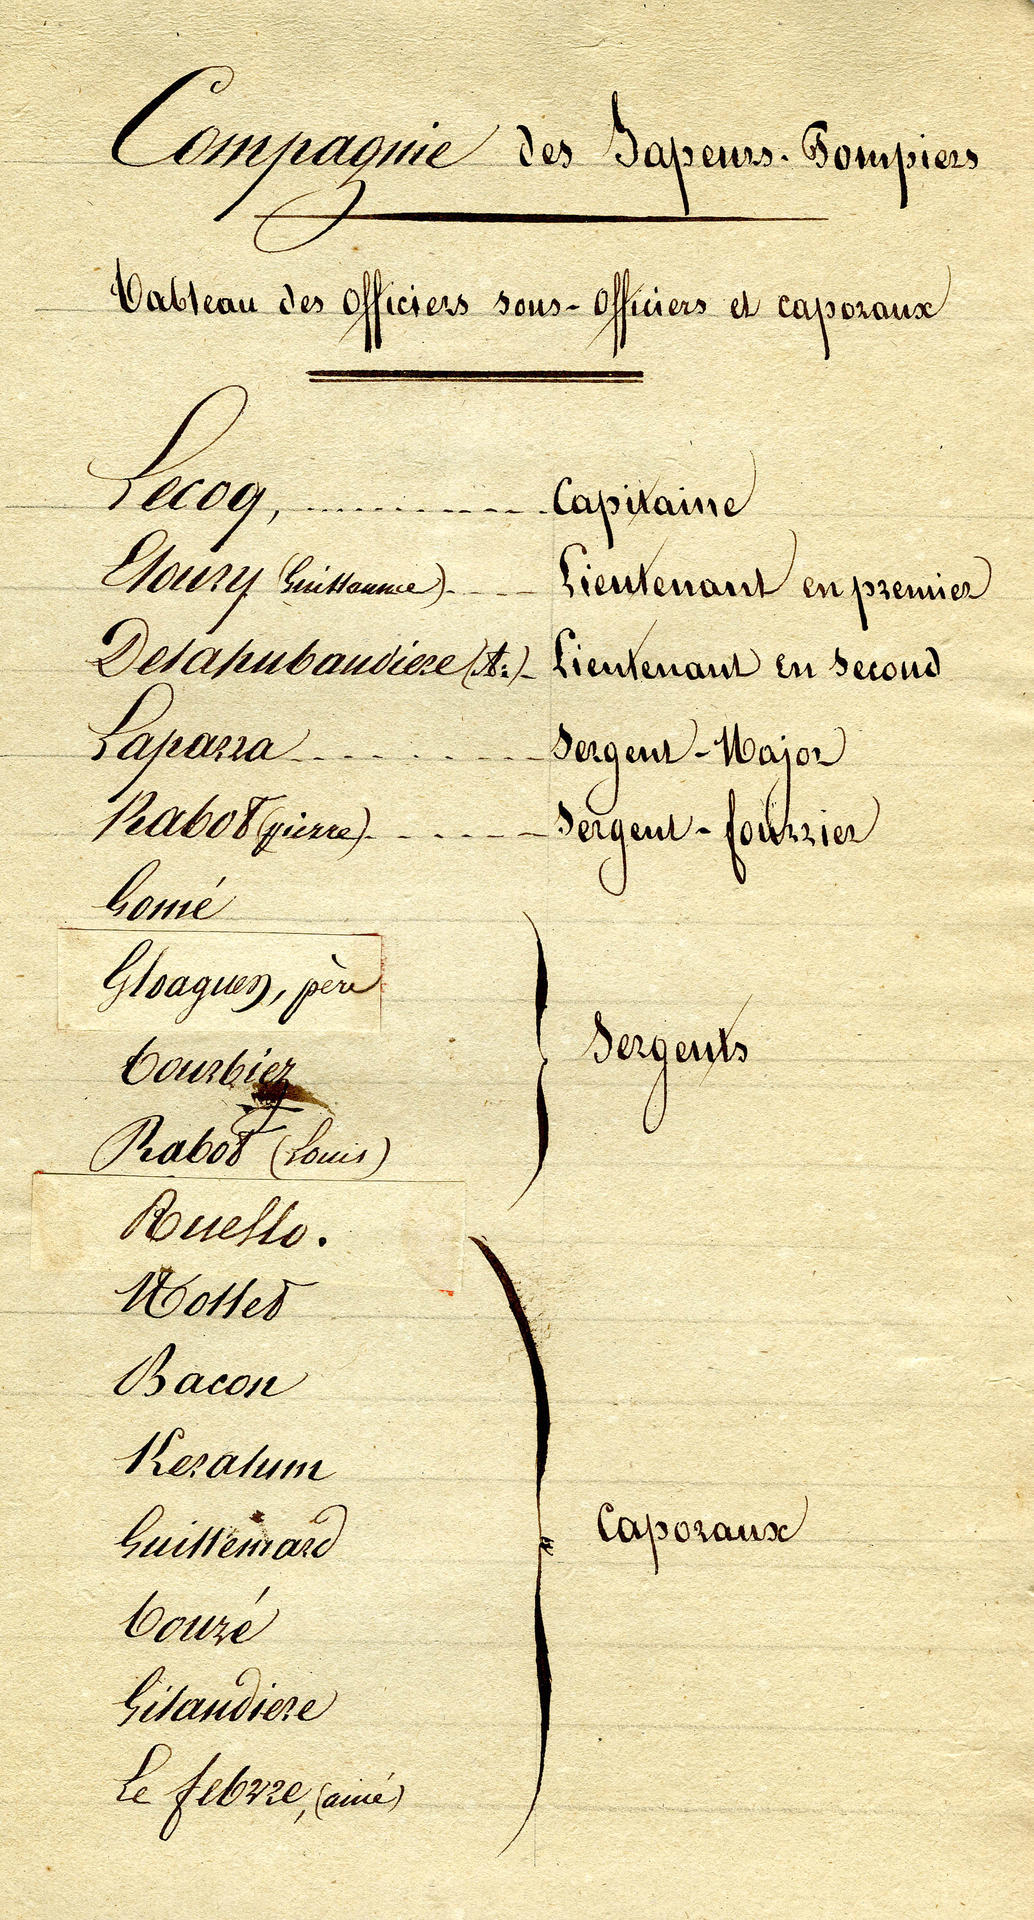 Compagnie des Sapeurs-Pompiers
Tableau des officiers sous-officiers et caporaux
Lecoq, Capitaine
Eloury (Guillaume) Lieutenant en premier
Delahubaudiere (A.) Lieutenant en second
Laparra Sergent-Major
Rabot (pierre) Sergent-fourrier
Gomé
Gloaguen, père
Sergents
Tourbiez
Rabot (Louis)
Ruello.
Mollet
Bacon
Keralum
Guillemard
Caporaux
Touzé
Gilaudiere
Le febvre, (ainé)